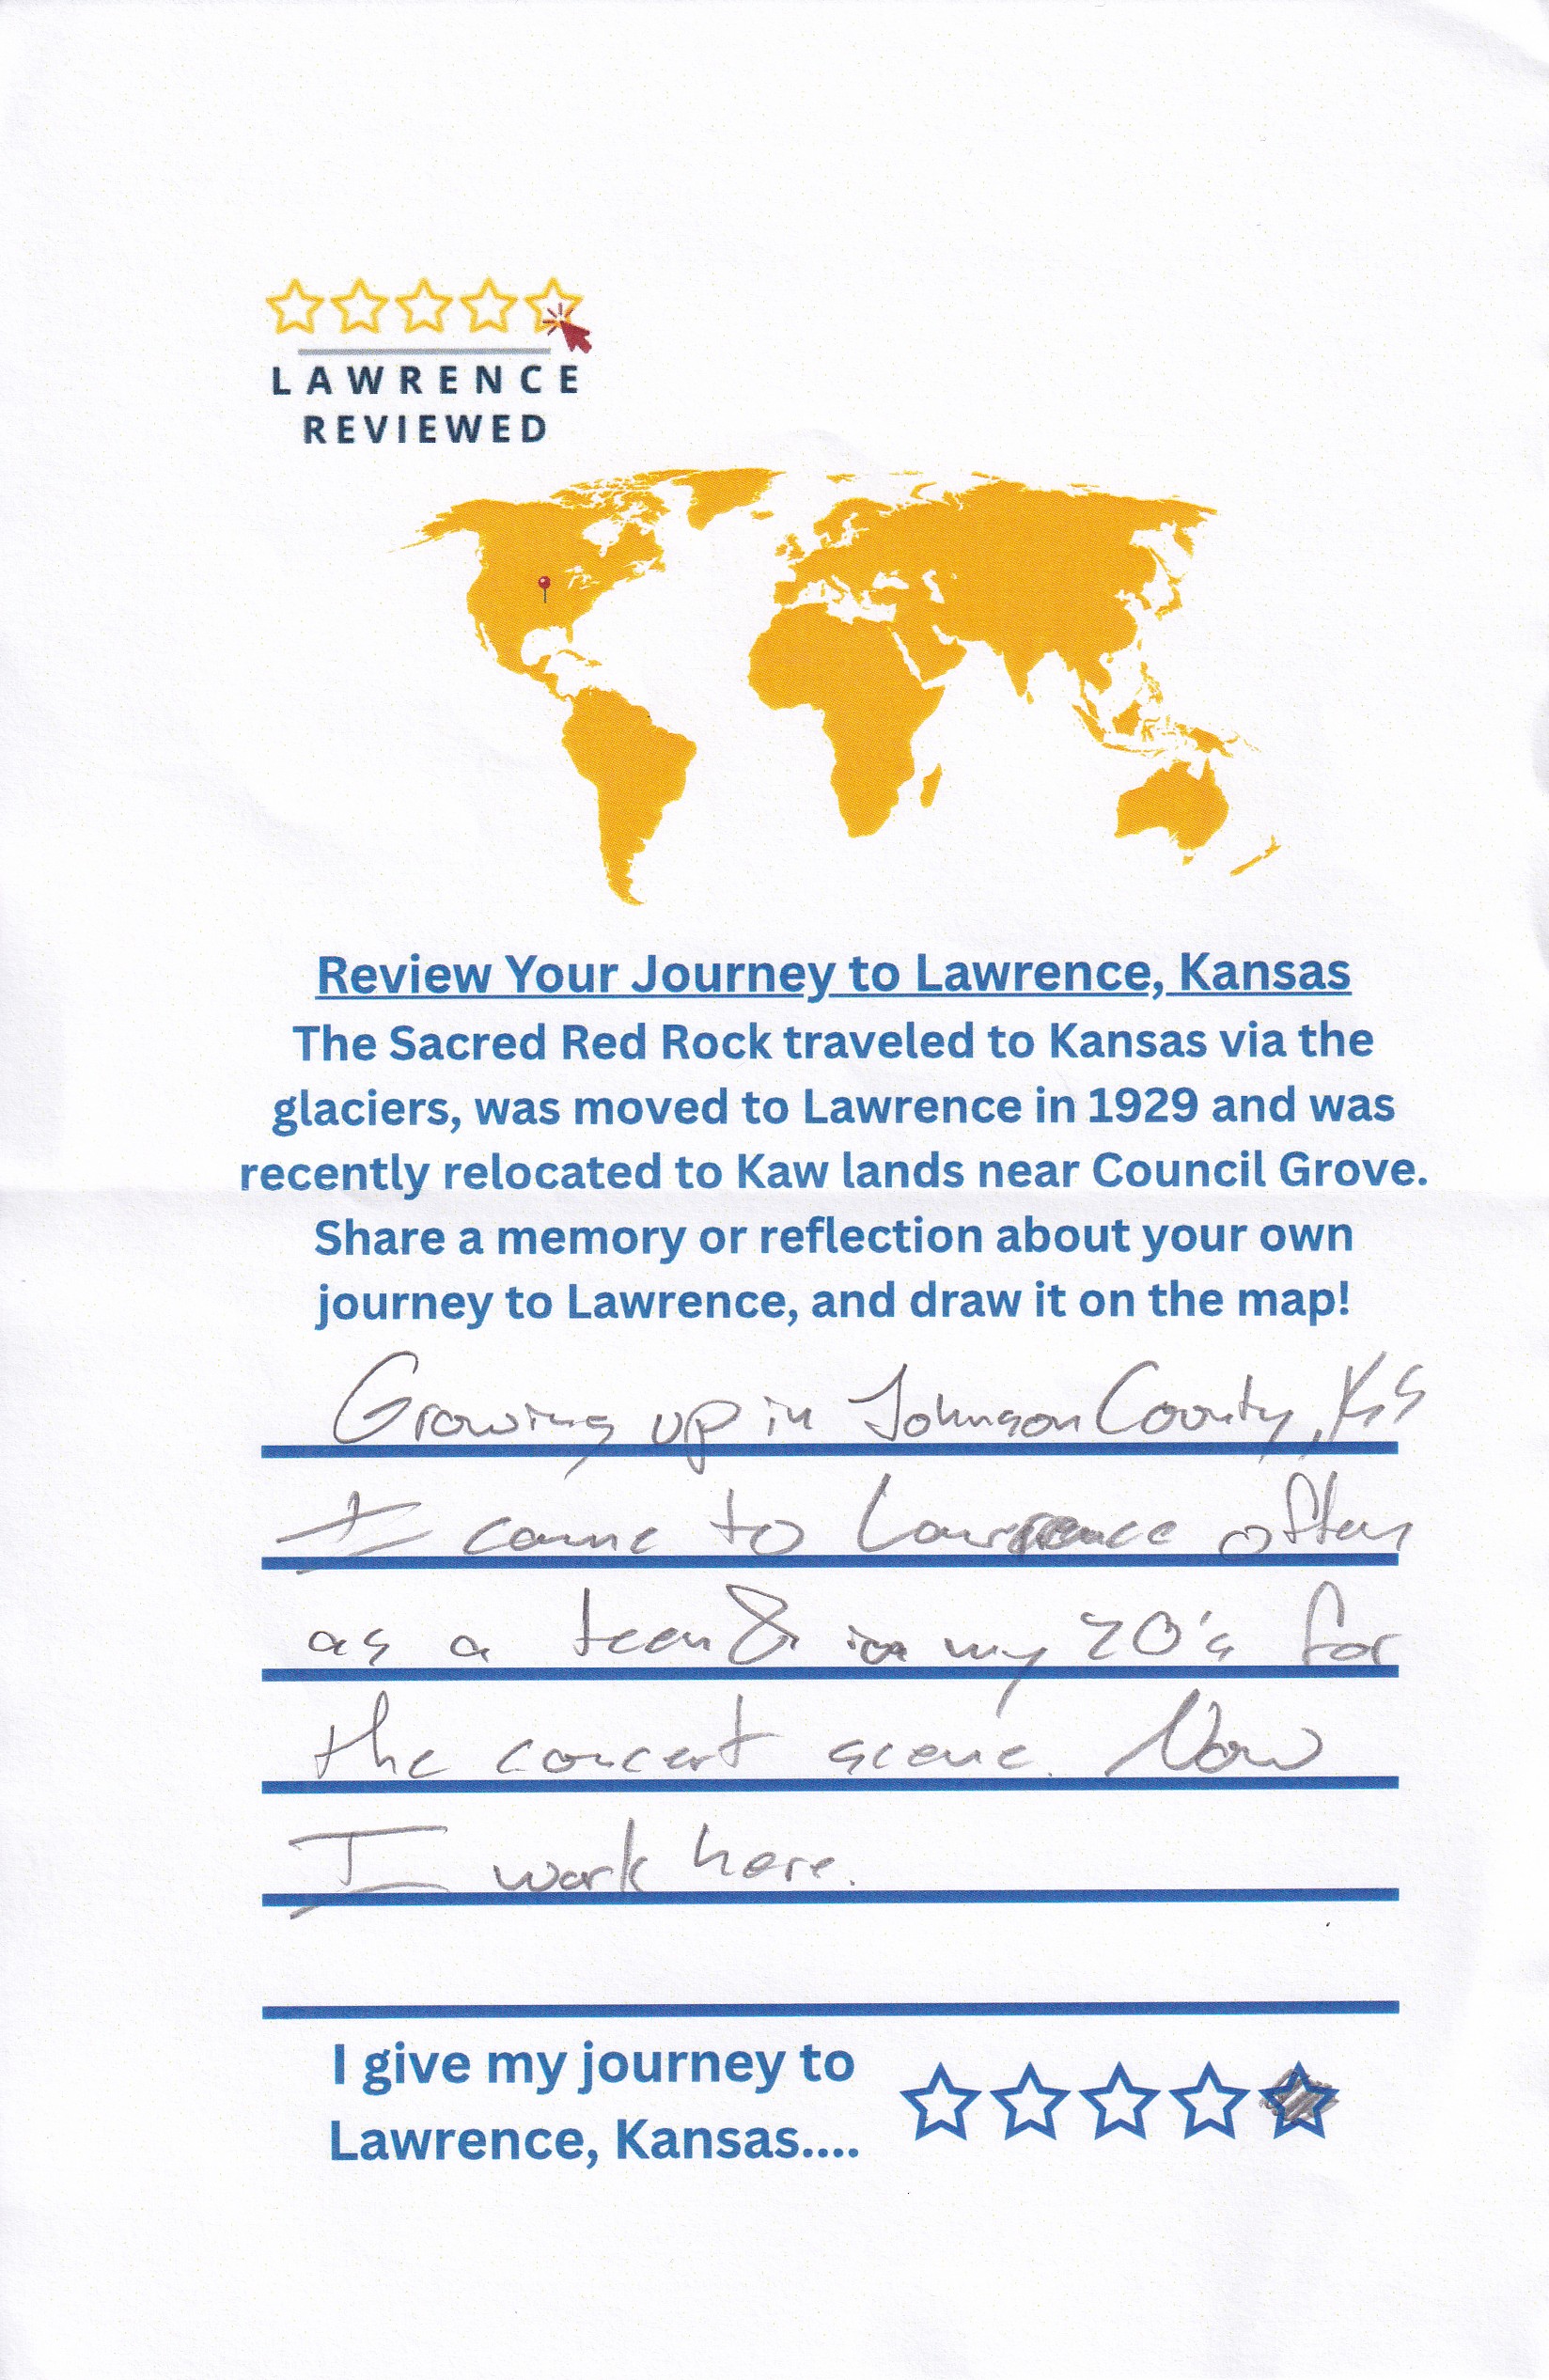 LAWRENCE
REVIEWED
Review Your Journey to Lawrence, Kansas
The Sacred Red Rock traveled to Kansas via the
glaciers, was moved to Lawrence in 1929 and was
recently relocated to Kaw lands near Council Grove.
Share a memory or reflection about your own
journey to Lawrence, and draw it on the map!
Growing up in Johnson County, KS
I came to Lawrence often
as a teen & in my 20's for
the concert scene. Now
I work here.
I give my journey to
Lawrence, Kansas....